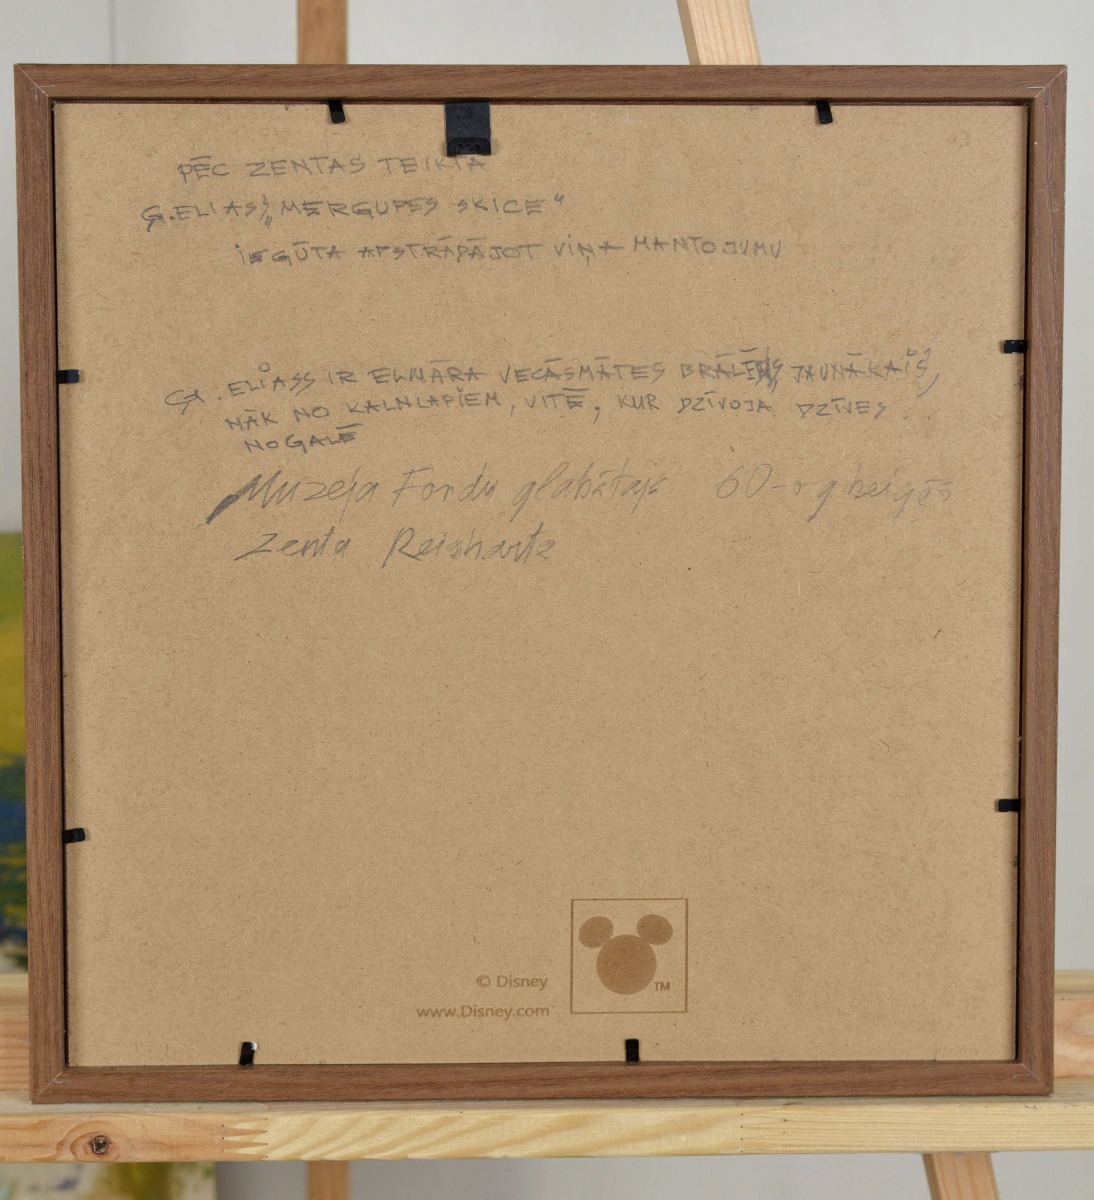 PĒC ZENTAS TEIKTĀ
Ģ.ELIASS „MERGUPES SKICE"
IEGŪTA APSTRĀDĀJOT VIŅA MANTOJUMU
Ģ. ELIASS IR ELMĀRA VECĀSMĀTES BRĀLĒNS JAUNĀKAIS,
NĀK NO KALNLAPIEM, VITĒ, KUR DZĪVOJA DZĪVES
NOGALĒ
Muzeja Fondu glabātāja 60-o g beigās
Zenta
© Disney
TM
www.Disney.com